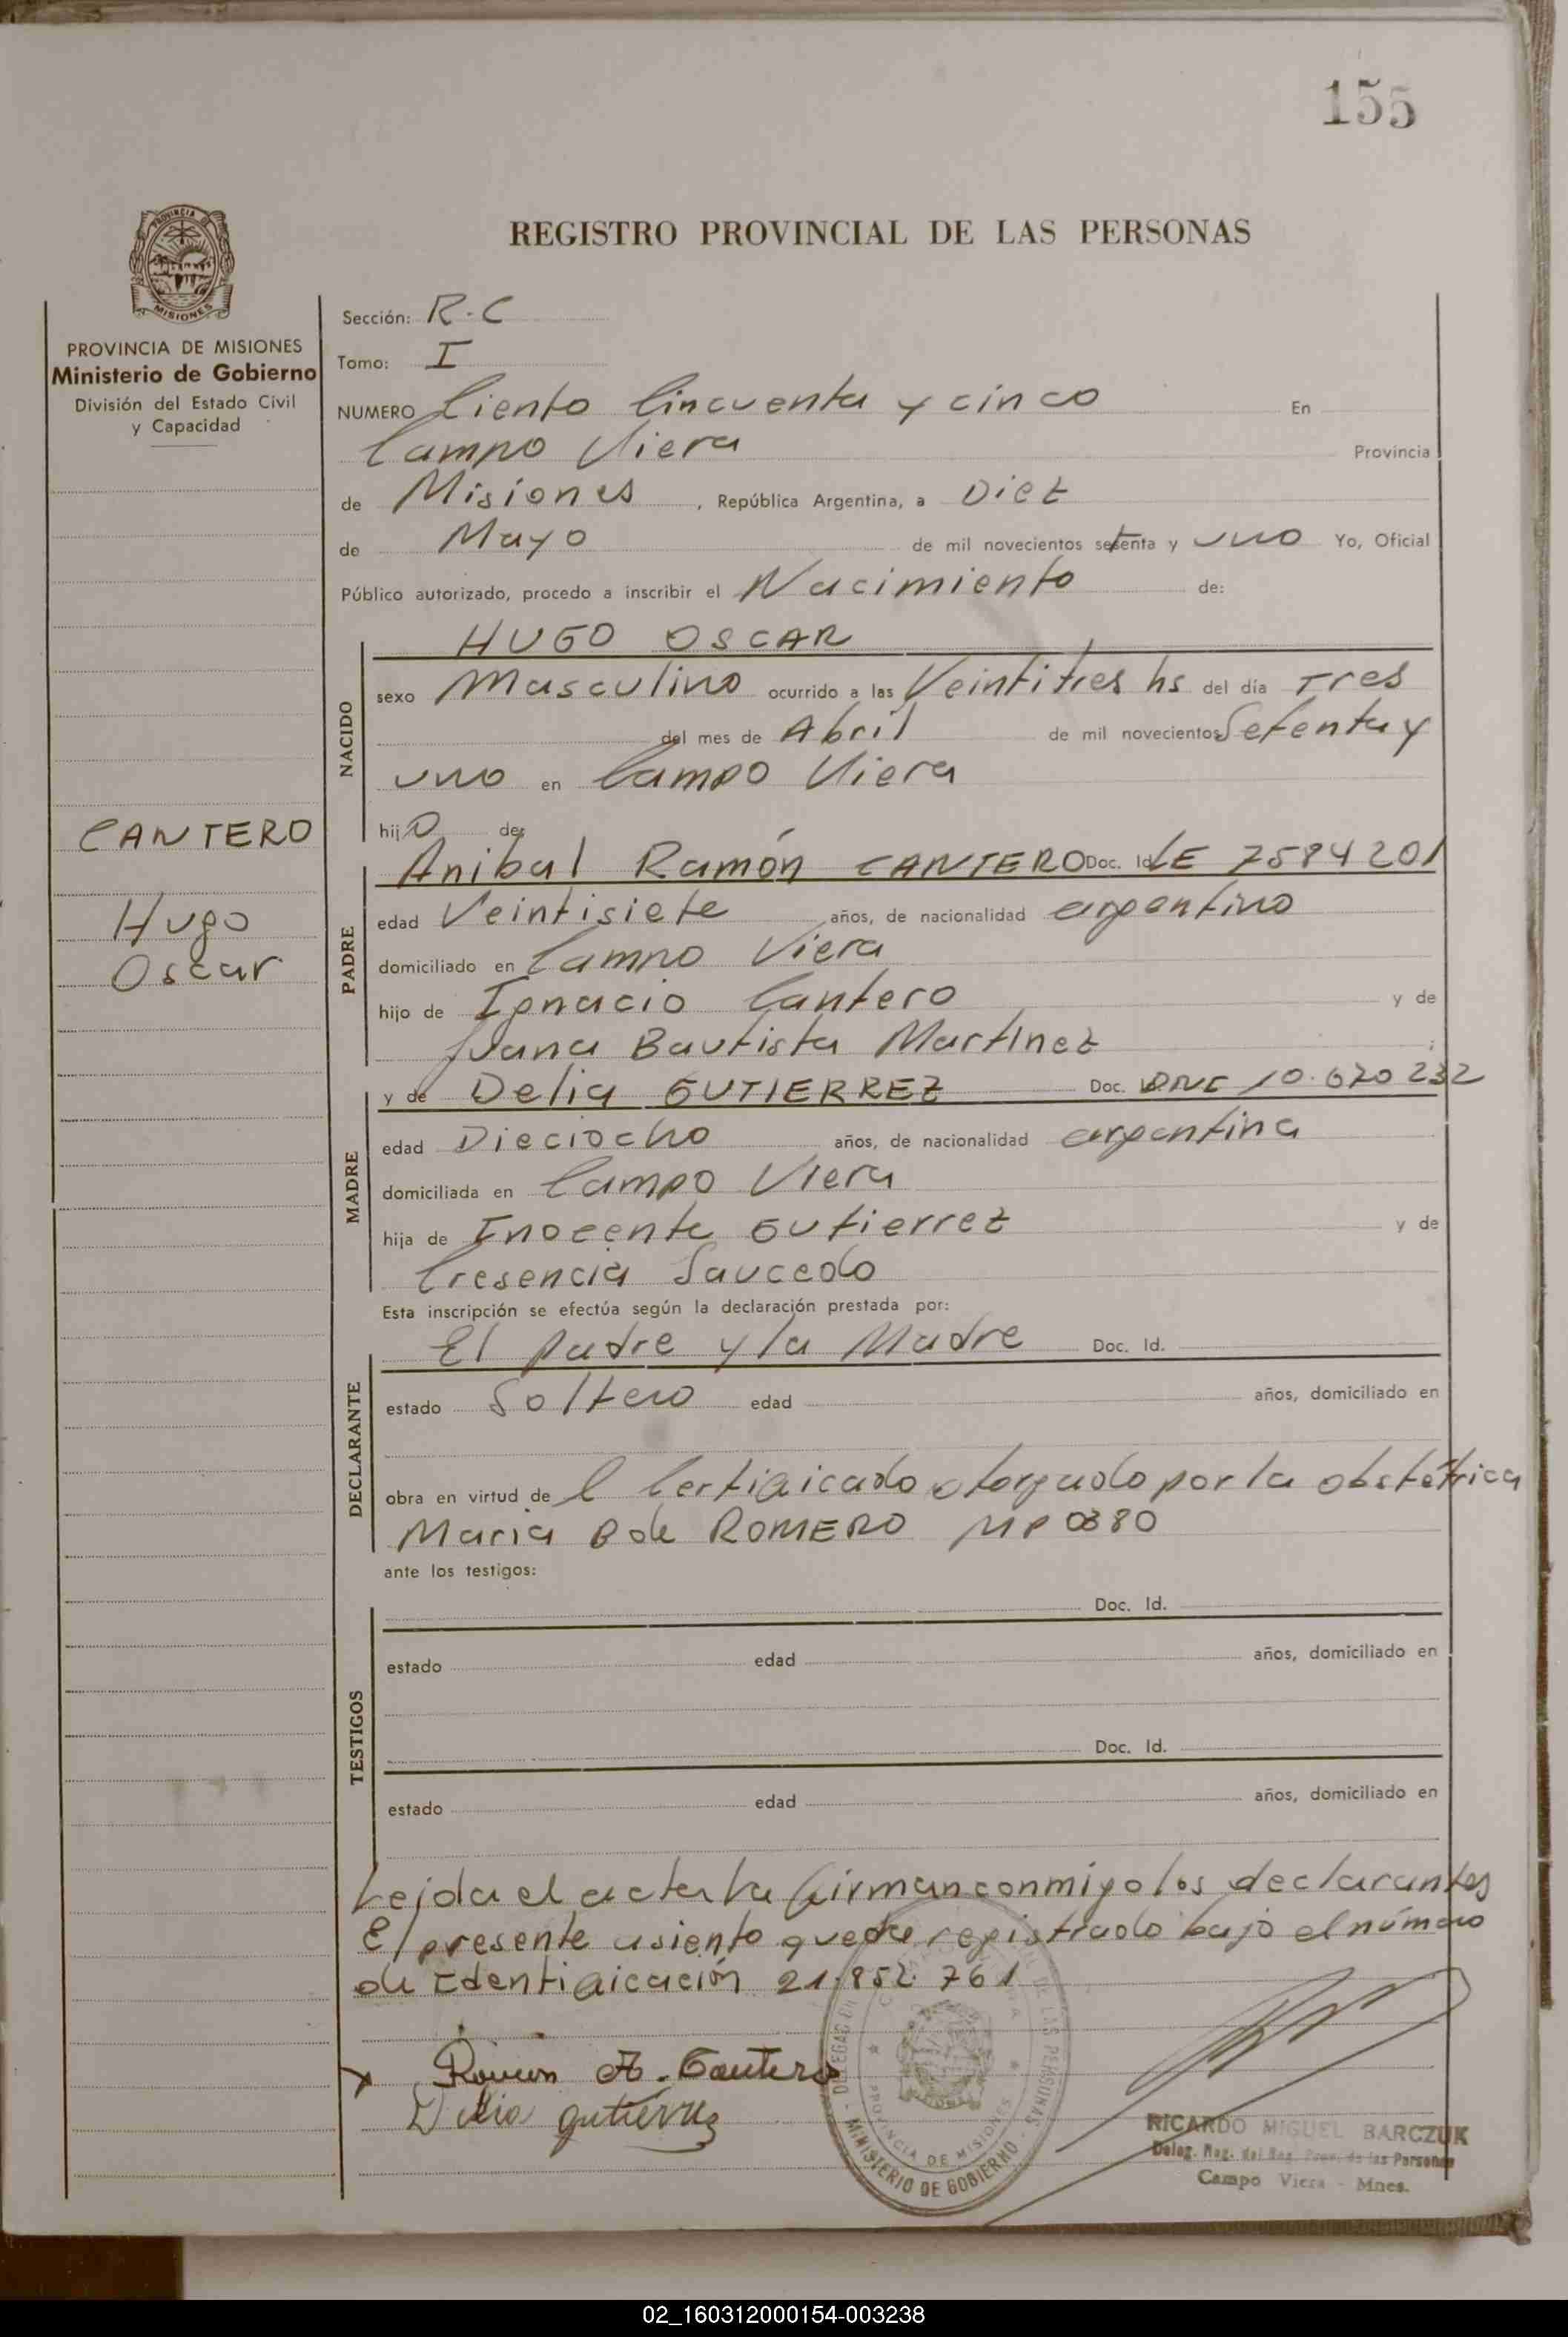 155
REGISTRO PROVINCIAL DE LAS PERSONAS
PROVINCIA DE MISIONES
Ministerio de Gobierno
División del Estado Civil
y Capacidad
CANTERO
Hugo
Oscar
Sección: R.C
Tomo: I
NUMERO Ciento Cincuenta y cinco En
Campo Viera Provincia
de Misiones, República Argentina, a Diez
de Mayo de mil novecientos setenta y uno Yo, Oficial
Público autorizado, procedo a inscribir el Nacimiento de:
HUGO OSCAR
NACIDO
sexo Masculino ocurrido a las Veintitres hs del día Tres
del mes de Abril de mil novecientos Setenta y
uno en Campo Viera
hijo de:
PADRE
Anibal Ramón CANTERO Doc. Id. LE 7584201
edad Veintisiete años, de nacionalidad argentino
domiciliado en Campo Viera
hijo de Ignacio Cantero y de
Juana Bautista Martinez ;
MADRE
y de Delia GUTIERREZ Doc. DNI 10.670232
edad Dieciocho años, de nacionalidad argentina
domiciliada en Campo Viera
hija de Inocente Gutierrez y de
Cresencia Saucedo
Esta inscripción se efectúa según la declaración prestada por:
DECLARANTE
El padre y la Madre Doc. Id.
estado Soltero edad años, domiciliado en
obra en virtud de l Certificado otorgado por la obstétrica
Maria B de ROMERO MP 0380
ante los testigos:
TESTIGOS
Doc. Id.
estado edad años, domiciliado en
Doc. Id.
estado edad años, domiciliado en
Leida el acta la firman conmigo los declarantes
El presente asiento queda registrado bajo el número
de Identificación 21.852.761
Ramon A. Cantero
Delia gutierrez
MINISTERIO DE GOBIERNO
PROVINCIA DE MISIONES
RICARDO MIGUEL BARCZUK
Deleg. Reg. del Reg. Prov. de las Personas
Campo Viera - Mnes.
02_160312000154-003238